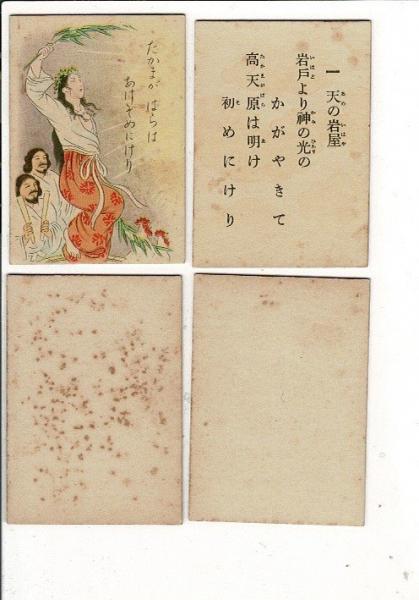 たかまが はらは
あけそめにけり
一 天の岩屋
岩戸より神の光の
かがやきて
高天原は明け
初めにけり